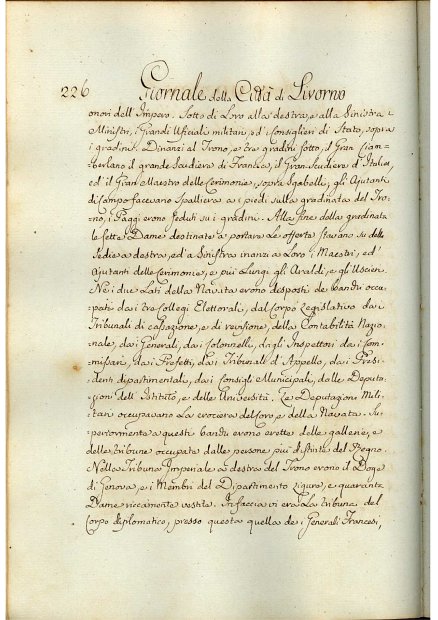 226 Giornale della Città di Livorno
onori dell'Impero. Sotto di Loro alla destra, e alla Sinistra i
Ministri, i Grandi Uficiali militari, ed i Consiglieri di Stato, sopra
i gradini. Dinanzi al Trono, e tre gradini sotto, il Gran Ciam=
berlano il grande Scudiere di Francia, il Gran Scudiere d'Italia,
ed il Gran Maestro delle Cerimonie, sopra Sgabelli, gli Ajutanti
di Campo facevano Spalliera a i piedi sulla gradinata del Tro-
no, i Paggi erono seduti su i gradini. Alla fine della gradinata
le sette Dame destinate a portare le offerte stavano su delle
Sedie a destra, ed a Sinistra inanzi a Loro i Maestri, ed
Ajutanti delle Cerimonie, e più lungi gli Araldi, e gli Uscieri.
Nei due Lati della Navata erono desposti de bandi occu-
pati da i tre Collegi Elettorali, dal Corpo Legislativo da i
Tribunali di cassazione, e di revisione, della Contabilità Nazio-
nale, da i Generali, da i Colonnelli, dagli Inspettori, da i Com-
missari, da i Prefetti, da i Tribunali d'Appello, da i Presi-
denti dipartimentali, da i Consigli Municipali, dalle Deputa-
zioni dell'Istituto, e delle Università. Le Deputazioni Mili-
tari occupavano la crociera del Coro, e della Navata. Su-
periormente a questi bandi erono erette delle gallerie, e
delle tribune occupate dalle persone più distinte del Regno.
Nella Tribuna Imperiale a destra del Trono erono il Doge
di Genova, e i Membri del Dipartimento Ligure, e quaranta
Dame riccamente vestite. In faccia vi era la tribuna del
Corpo diplomatico, presso questa quella de i Generali Francesi,